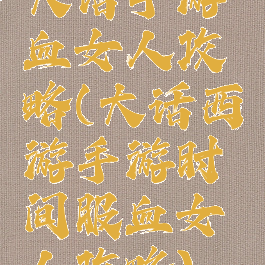 大话手游
血女人攻
略(大话西
游手游时
间服血女
人攻略)